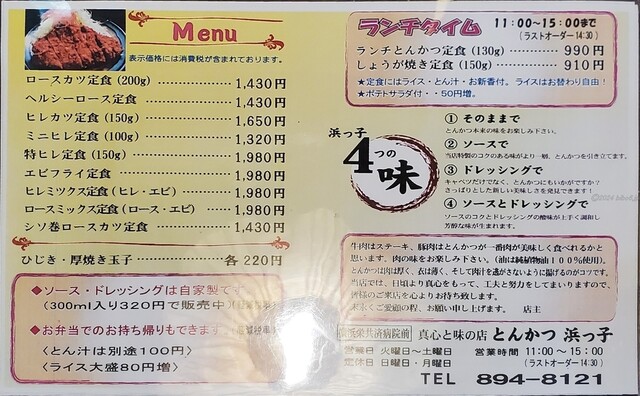 Menu
表示価格には消費税が含まれております。
ロースカツ定食 (200g) 1,430円
ヘルシーロース定食 1,430円
ヒレカツ定食 (150g) 1,650円
ミニヒレ定食 (100g) 1,320円
特ヒレ定食 (150g) 1,980円
エビフライ定食 1,980円
ヒレミックス定食 (ヒレ・エビ) 1,980円
ロースミックス定食 (ロース・エビ) 1,980円
シソ巻ロースカツ定食 1,430円
ひじき・厚焼き玉子 各 220円
◆ソース・ドレッシングは自家製です
(300ml入り320円で販売中)
◆お弁当でのお持ち帰りもできます。
〈とん汁は別途100円〉
〈ライス大盛80円増〉
ランチタイム 11:00〜15:00まで
(ラストオーダー14:30)
ランチとんかつ定食 (130g) 990円
しょうが焼き定食 (150g) 910円
★定食にはライス・とん汁・お新香付。ライスはお替わり自由！
★ポテトサラダ付・・50円増。
浜っ子
4つの味
① そのままで
とんかつ本来の味をお楽しみ下さい。
② ソースで
当店特製のコクのある味がより一層、とんかつを引き立てます。
③ ドレッシングで
キャベツだけでなく、とんかつにもいかがですか？
さっぱりとした新しい美味しさを発見できます！
④ ソースとドレッシングで
ソースのコクとドレッシングの酸味が上手く調和し
芳醇な味が生まれます。
牛肉はステーキ、豚肉はとんかつが一番肉が美味しく食べれるかと
思います。肉の味をお楽しみ下さい。(油は純植物油100%使用)。
とんかつは肉は厚く、衣は薄く、そして肉汁を逃がさないように揚げるのがコツです。
当店では、日頃より真心をもって、工夫と努力をしてまいりますので、
皆様のご来店を心よりお待ち致します。
末永くご愛顧の程、お願い申し上げます。 店主
横浜栄共済病院前 真心と味の店 とんかつ 浜っ子
営業日 火曜日〜土曜日 営業時間 11:00〜15:00
定休日 日曜日・月曜日 (ラストオーダー14:30)
TEL 894-8121